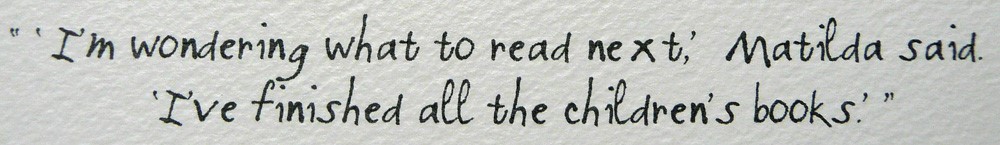 " 'I'm wondering what to read next,' Matilda said.
'I've finished all the children's books.' "